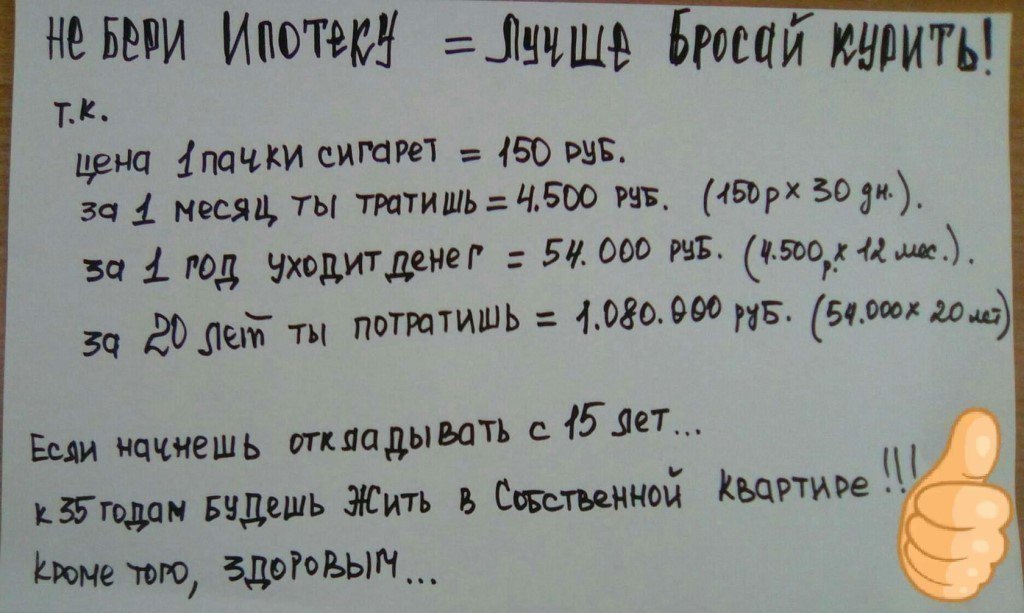 Не бери Ипотеку = Лучше Бросай курить!
т.к.
цена 1 пачки сигарет = 150 руб.
за 1 месяц ты тратишь = 4.500 руб. (150р х 30 дн.).
за 1 год уходит денег = 54.000 руб. (4.500р. х 12 мес.).
за 20 лет ты потратишь = 1.080.000 руб. (54.000 х 20 лет)
Если начнешь откладывать с 15 лет...
к 35 годам будешь Жить в Собственной квартире!!!
кроме того, здоровым...